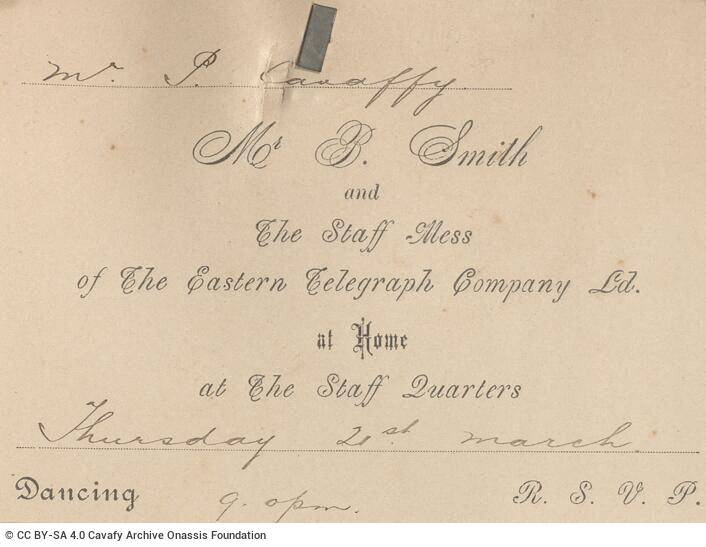 Mr. P. Cavaffy.
Mr B. Smith
and
The Staff Mess
of The Eastern Telegraph Company Ld.
at Home
at The Staff Quarters
Thursday 21st. march.
Dancing 9. 0pm. R. S. V. P.
© CC BY-SA 4.0 Cavafy Archive Onassis Foundation